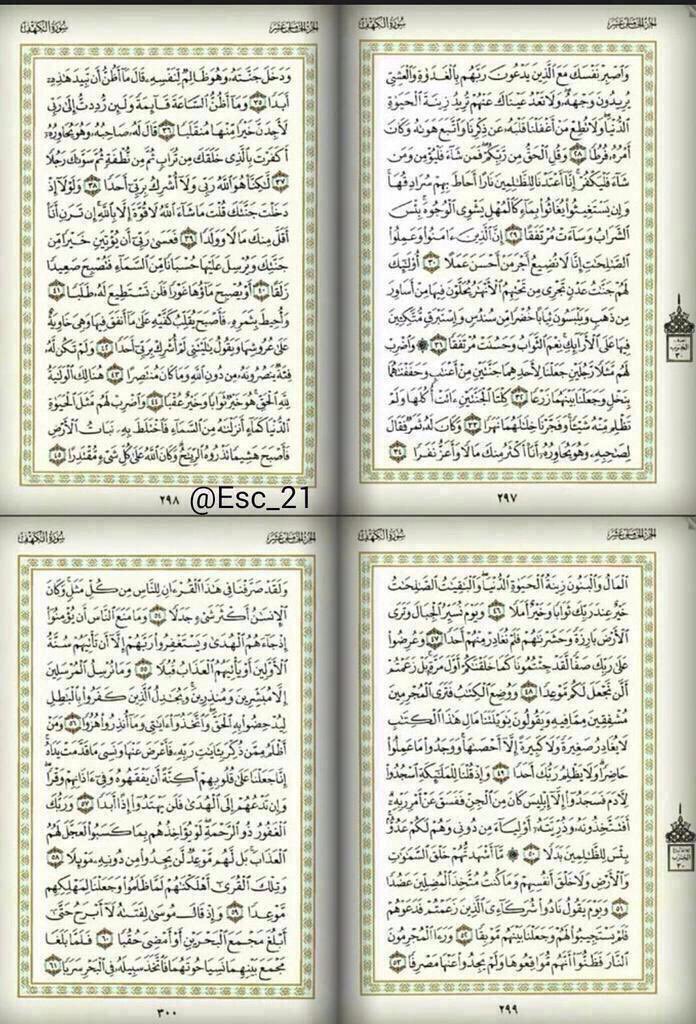 الجزء الخامس عشر
سورة الكهف
واصبر نفسك مع الذين يدعون ربهم بالغدوة والعشي
يريدون وجهه ولا تعد عيناك عنهم تريد زينة الحيوة
الدنيا ولا تطع من أغفلنا قلبه عن ذكرنا واتبع هوىه وكان
أمره فرطا ٢٨ وقل الحق من ربكم فمن شاء فليؤمن ومن
شاء فليكفر إنا أعتدنا للظلمين نارا أحاط بهم سرادقها
وإن يستغيثوا يغاثوا بماء كالمهل يشوي الوجوه بئس
الشراب وساءت مرتفقا ٢٩ إن الذين ءامنوا وعملوا
الصلحت إنا لا نضيع أجر من أحسن عملا ٣٠ أولئك
لهم جنت عدن تجري من تحتهم الأنهر يحلون فيها من أساور
من ذهب ويلبسون ثيابا خضرا من سندس وإستبرق متكئين
فيها على الأرائك نعم الثواب وحسنت مرتفقا ٣١ ۞ واضرب
لهم مثلا رجلين جعلنا لأحدهما جنتين من أعنب وحففنهما
بنخل وجعلنا بينهما زرعا ٣٢ كلتا الجنتين ءاتت أكلها ولم
تظلم منه شيئا وفجرنا خللهما نهرا ٣٣ وكان له ثمر فقال
لصحبه وهو يحاوره أنا أكثر منك مالا وأعز نفرا ٣٤
٢٩٧
الجزء الخامس عشر
سورة الكهف
ودخل جنته وهو ظالم لنفسه قال ما أظن أن تبيد هذه
أبدا ٣٥ وما أظن الساعة قائمة ولئن رددت إلى ربي
لأجدن خيرا منها منقلبا ٣٦ قال له صاحبه وهو يحاوره
أكفرت بالذي خلقك من تراب ثم من نطفة ثم سوىك رجلا
٣٧ لكنا هو الله ربي ولا أشرك بربي أحدا ٣٨ ولولا إذ
دخلت جنتك قلت ما شاء الله لا قوة إلا بالله إن ترن أنا
أقل منك مالا وولدا ٣٩ فعسى ربي أن يؤتين خيرا من
جنتك ويرسل عليها حسبانا من السماء فتصبح صعيدا
زلقا ٤٠ أو يصبح ماؤها غورا فلن تستطيع له طلبا ٤١
وأحيط بثمره فأصبح يقلب كفيه على ما أنفق فيها وهي خاوية
على عروشها ويقول يليتني لم أشرك بربي أحدا ٤٢ ولم تكن له
فئة ينصرونه من دون الله وما كان منتصرا ٤٣ هنالك الولية
لله الحق هو خير ثوابا وخير عقبا ٤٤ واضرب لهم مثل الحيوة
الدنيا كماء أنزلنه من السماء فاختلط به نبات الأرض
فأصبح هشيما تذروه الريح وكان الله على كل شيء مقتدرا ٤٥
٢٩٨
@Esc_21
الجزء الخامس عشر
سورة الكهف
المال والبنون زينة الحيوة الدنيا والبقيت الصلحت
خير عند ربك ثوابا وخير أملا ٤٦ ويوم نسير الجبال وترى
الأرض بارزة وحشرنهم فلم نغادر منهم أحدا ٤٧ وعرضوا
على ربك صفا لقد جئتمونا كما خلقنكم أول مرة بل زعمتم
ألن نجعل لكم موعدا ٤٨ ووضع الكتب فترى المجرمين
مشفقين مما فيه ويقولون يويلتنا مال هذا الكتب
لا يغادر صغيرة ولا كبيرة إلا أحصىها ووجدوا ما عملوا
حاضرا ولا يظلم ربك أحدا ٤٩ وإذ قلنا للملئكة اسجدوا
لأدم فسجدوا إلا إبليس كان من الجن ففسق عن أمر ربه
أفتتخذونه وذريته أولياء من دوني وهم لكم عدو
بئس للظلمين بدلا ٥٠ ۞ ما أشهدتهم خلق السموت
والأرض ولا خلق أنفسهم وما كنت متخذ المضلين عضدا
٥١ ويوم يقول نادوا شركاءي الذين زعمتم فدعوهم
فلم يستجيبوا لهم وجعلنا بينهم موبقا ٥٢ ورءا المجرمون
النار فظنوا أنهم مواقعوها ولم يجدوا عنها مصرفا ٥٣
٢٩٩
الجزء الخامس عشر
سورة الكهف
ولقد صرفنا في هذا القرءان للناس من كل مثل وكان
الإنسن أكثر شيء جدلا ٥٤ وما منع الناس أن يؤمنوا
إذ جاءهم الهدى ويستغفروا ربهم إلا أن تأتيهم سنة
الأولين أو يأتيهم العذاب قبلا ٥٥ وما نرسل المرسلين
إلا مبشرين ومنذرين ويجدل الذين كفروا بالبطل
ليدحضوا به الحق واتخذوا ءايتي وما أنذروا هزوا ٥٦ ومن
أظلم ممن ذكر بءايت ربه فأعرض عنها ونسي ما قدمت يداه
إنا جعلنا على قلوبهم أكنة أن يفقهوه وفي ءاذانهم وقرا
وإن تدعهم إلى الهدى فلن يهتدوا إذا أبدا ٥٧ وربك
الغفور ذو الرحمة لو يؤاخذهم بما كسبوا لعجل لهم
العذاب بل لهم موعد لن يجدوا من دونه موئلا ٥٨
وتلك القرى أهلكنهم لما ظلموا وجعلنا لمهلكهم
موعدا ٥٩ وإذ قال موسى لفتىه لا أبرح حتى
أبلغ مجمع البحرين أو أمضي حقبا ٦٠ فلما بلغا
مجمع بينهما نسيا حوتهما فاتخذ سبيله في البحر سربا ٦١
٣٠٠